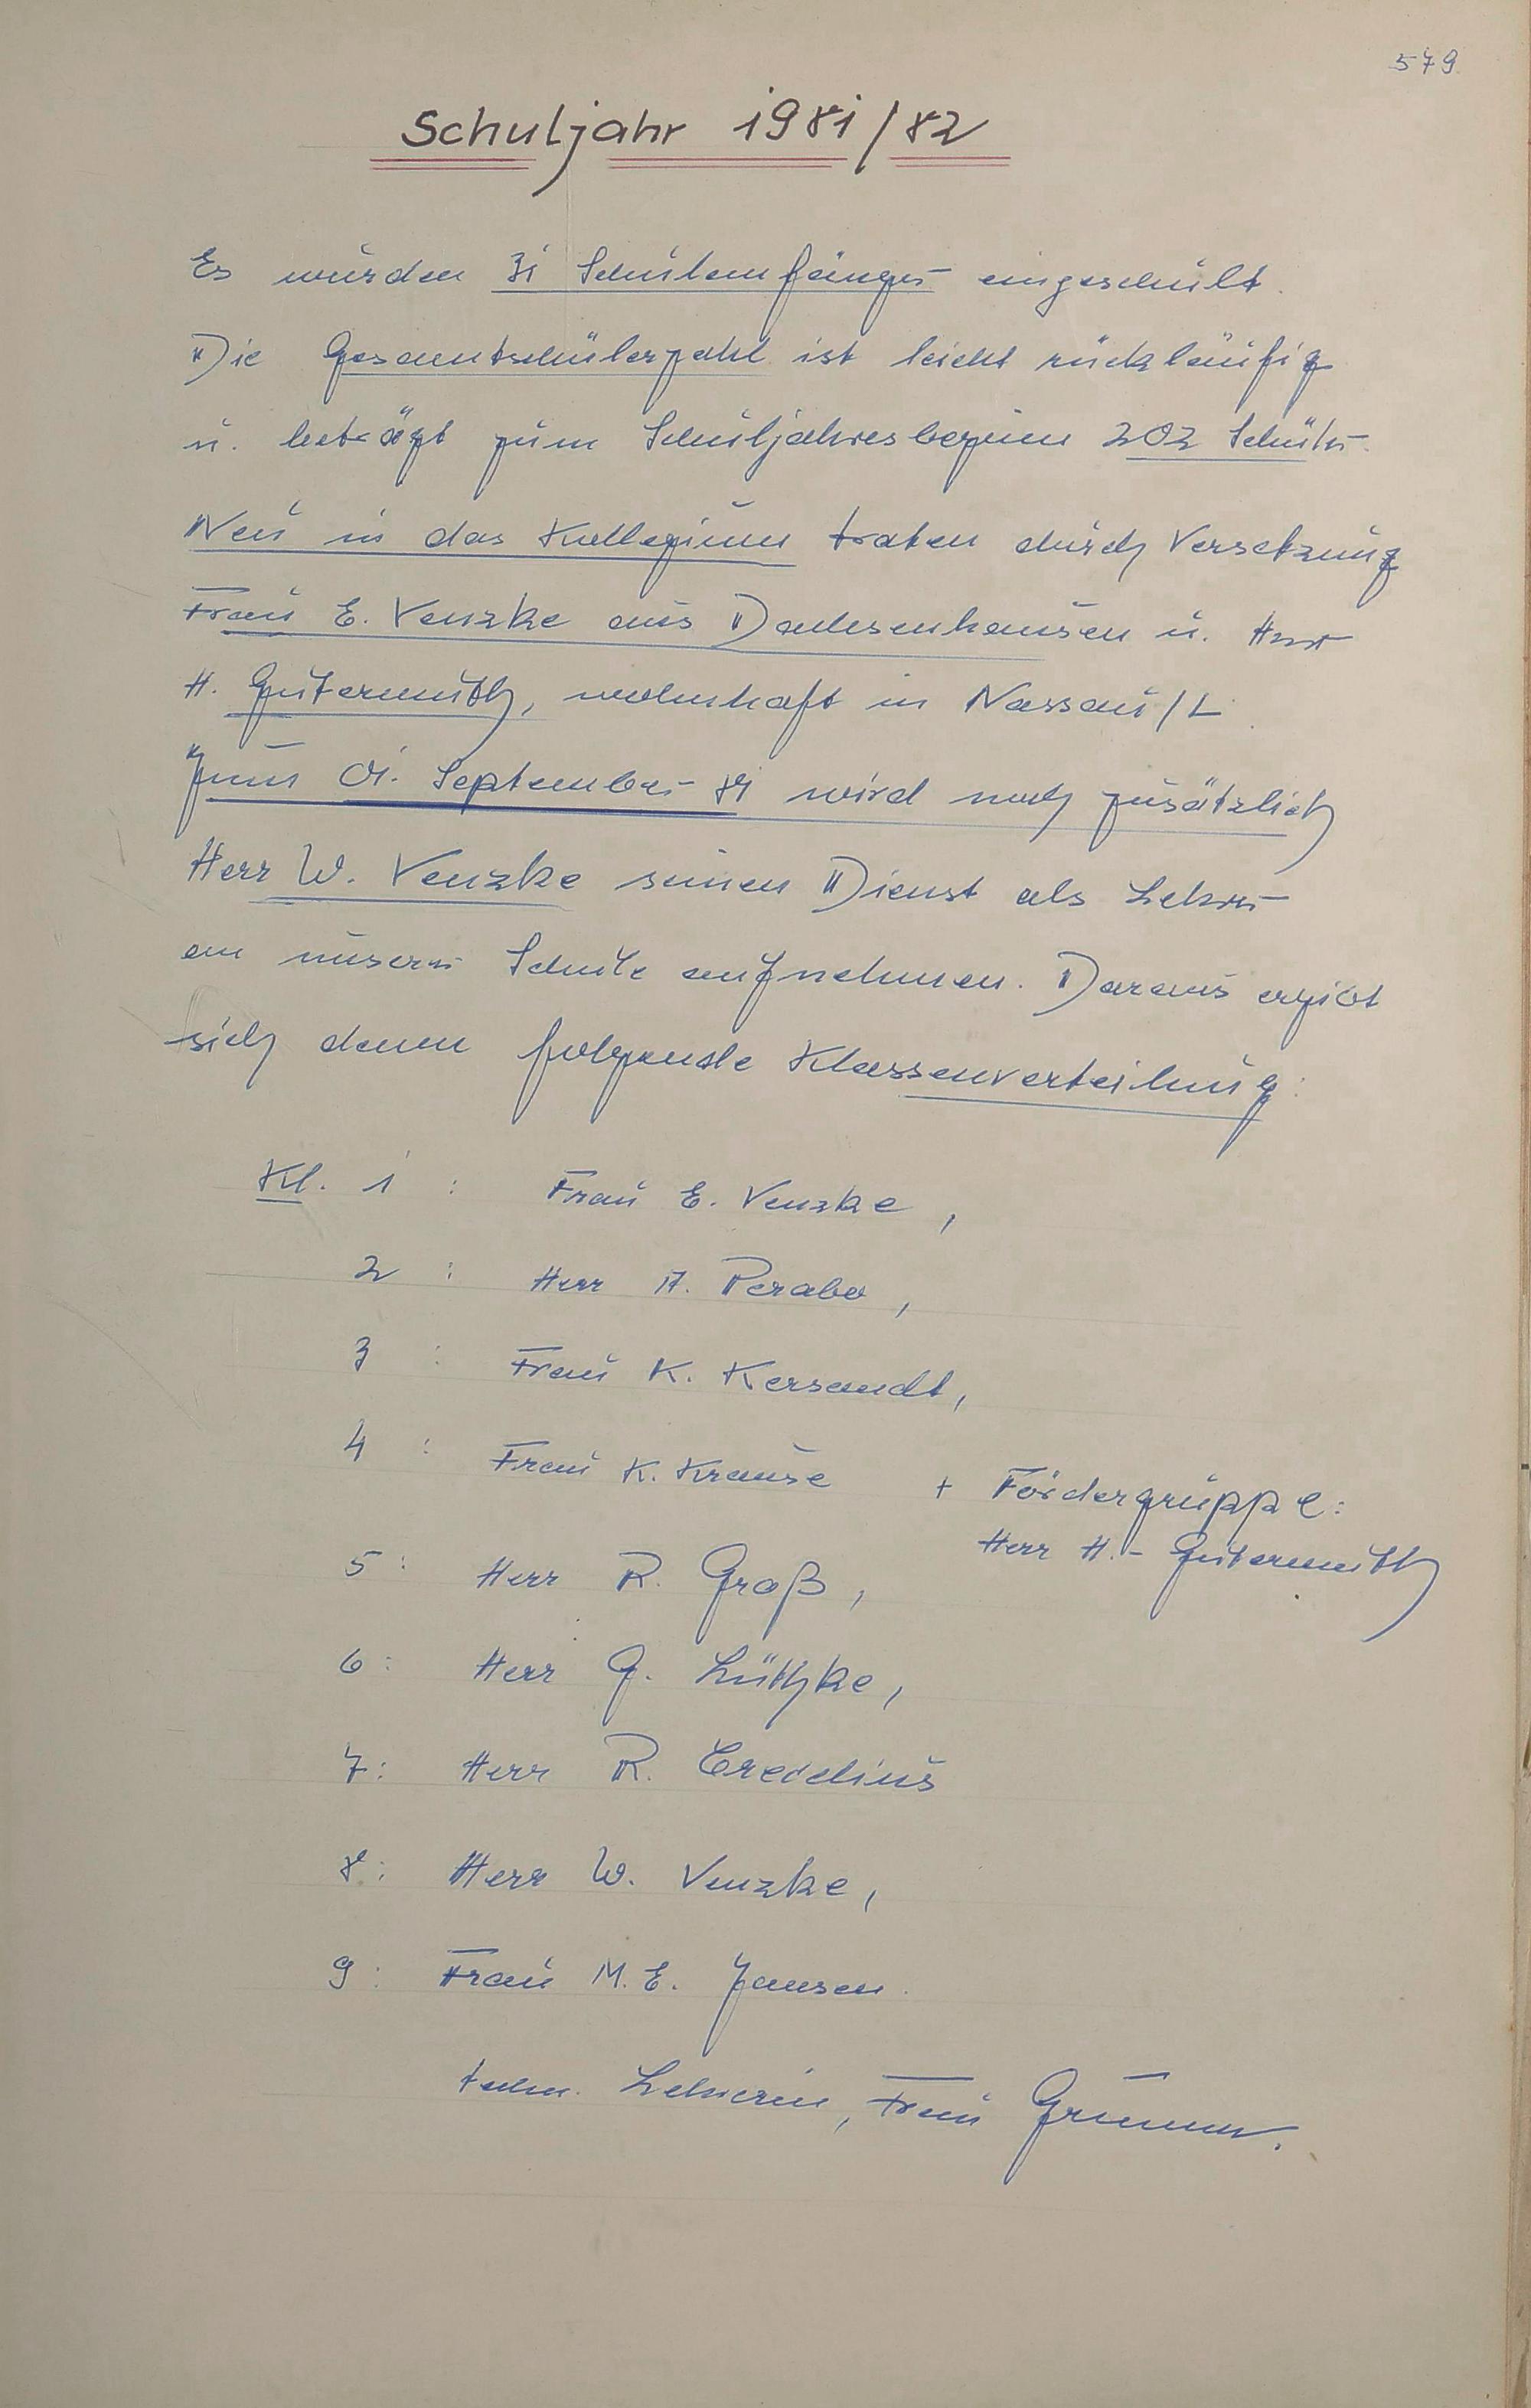 579
Schuljahr 1981/82
Es wurden 31 Schulanfänger eingeschult.
Die Gesamtschülerzahl ist leicht rückläufig
u. beträgt zum Schuljahresbeginn 202 Schüler.
Neu in das Kollegium traten durch Versetzung
Frau E. Venzke aus Dausenhausen u. Herr
H. Gutermuth, wohnhaft in Nassau/L.
Zum 01. September 81 wird noch zusätzlich
Herr W. Venzke seinen Dienst als Lehrer
an unserer Schule aufnehmen. Daraus ergibt
sich dann folgende Klassenverteilung:
Kl. 1 : Frau E. Venzke,
2 : Herr A. Perabo,
3 : Frau K. Kersandt,
4 : Frau K. Krause + Fördergruppe:
Herr H. Gutermuth
5 : Herr R. Groß,
6 : Herr G. Lüthke,
7 : Herr R. Credelius
8 : Herr W. Venzke,
9 : Frau M. E. Jansen.
techn. Lehrerin, Frau